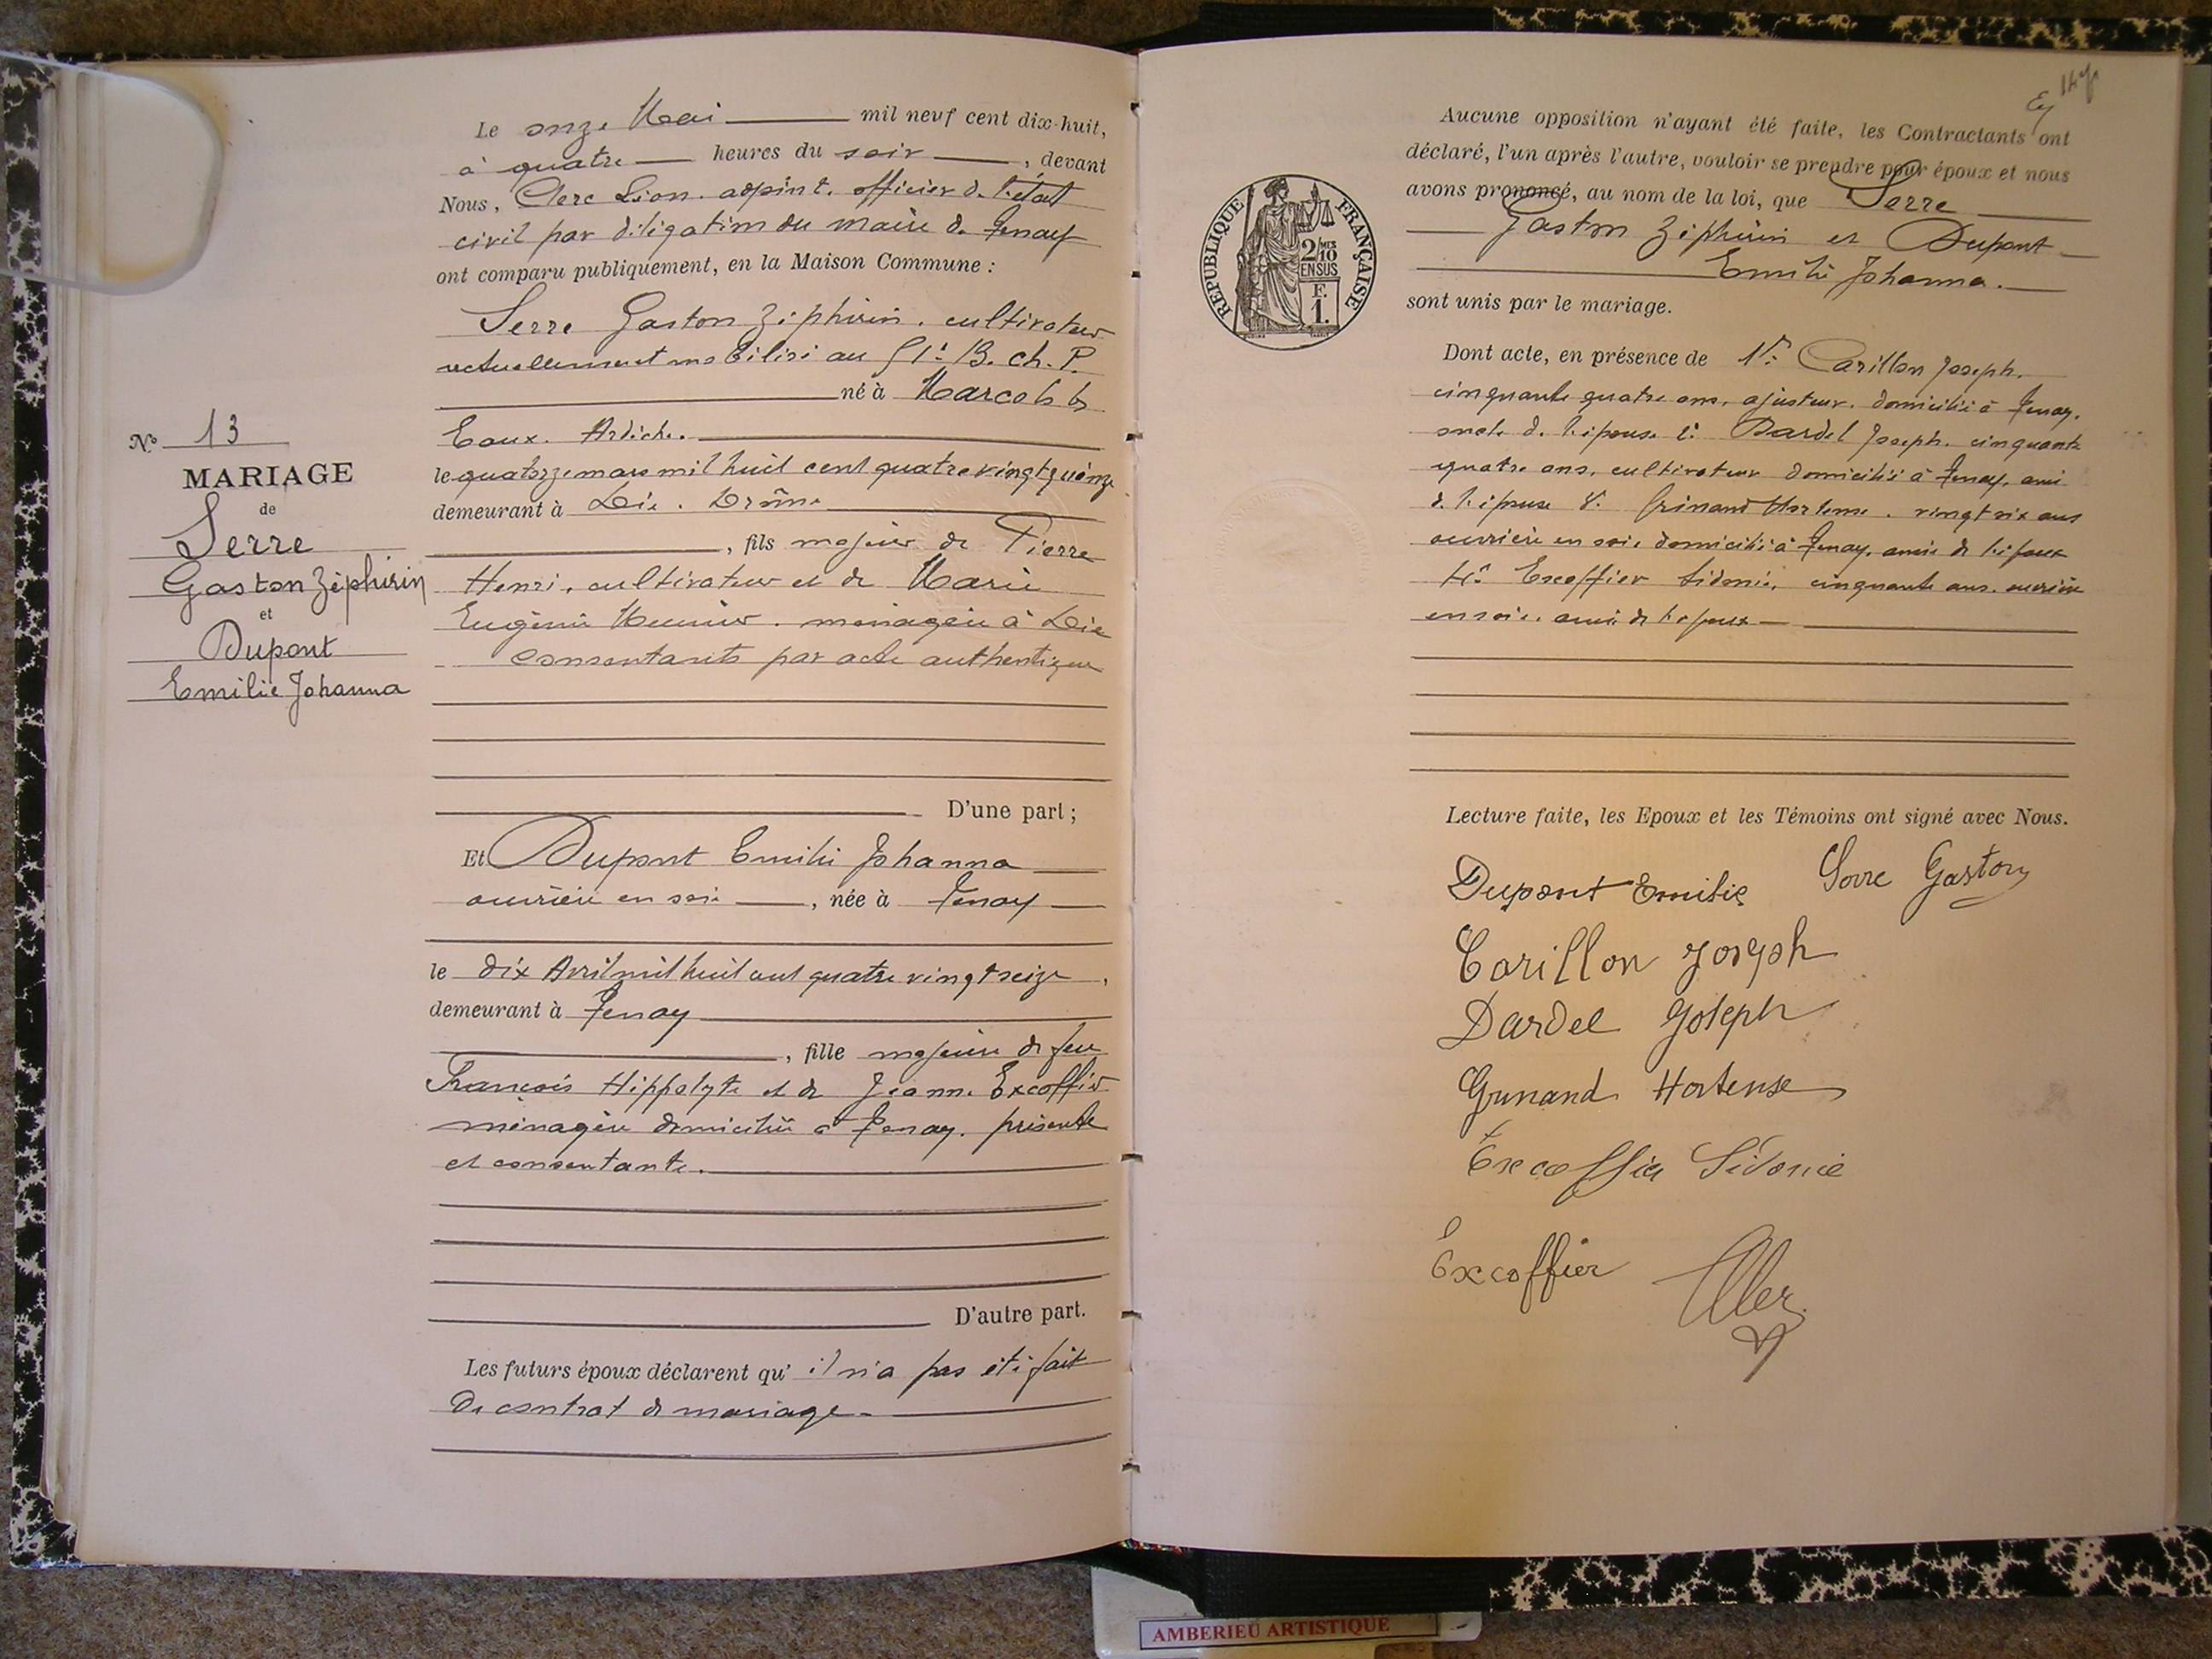 N° 13
MARIAGE
de
Serre
Gaston Zéphirin
et
Dupont
Emilie Johanna
Le onze Mai mil neuf cent dix-huit,
à quatre heures du soir, devant
Nous, Clerc Léon. adjoint. officier de l'état
civil par délégation du maire de Tenay
ont comparu publiquement, en la Maison Commune :
Serre Gaston Zéphirin. cultivateur
actuellement mobilisé au 51e B. ch. P.
né à Marcols les
Eaux. Ardèche.
le quatorze mars mil huit cent quatre vingt quinze
demeurant à Die. Drôme
, fils majeur de Pierre
Henri, cultivateur et de Marie
Eugénie Meunier. ménagère à Die
consentants par acte authentique
D'une part ;
Et Dupont Emilie Johanna
ouvrière en soie, née à Tenay
le dix Avril mil huit cent quatre vingt seize,
demeurant à Tenay
, fille majeure de feu
François Hippolyte et de Jeanne Excoffier
ménagère domiciliée à Tenay. présente
et consentante.
D'autre part.
Les futurs époux déclarent qu'il n'a pas été fait
de contrat de mariage.
Aucune opposition n'ayant été faite, les Contractants ont
déclaré, l'un après l'autre, vouloir se prendre pour époux et nous
avons prononcé, au nom de la loi, que Serre
Gaston Zéphirin et Dupont
Emilie Johanna.
sont unis par le mariage.
RÉPUBLIQUE FRANÇAISE
2/10 MES
EN SUS
F.
1.
Dont acte, en présence de 1° Carillon Joseph.
cinquante quatre ans, ajusteur. domicilié à Tenay.
oncle de l'épouse 2° Dardel Joseph. cinquante
quatre ans, cultivateur domicilié à Tenay, ami
de l'épouse 3° Grinand Hortense. vingt six ans
ouvrière en soie domiciliée à Tenay. amie de l'époux
4° Excoffier Sidonie, cinquante ans. ouvrière
en soie. amie de l'époux
Lecture faite, les Epoux et les Témoins ont signé avec Nous.
Dupont Emilie Serre Gaston
Carillon Joseph
Dardel Joseph
Grinand Hortense
Excoffier Sidonie
Excoffier
AMBERIEU ARTISTIQUE